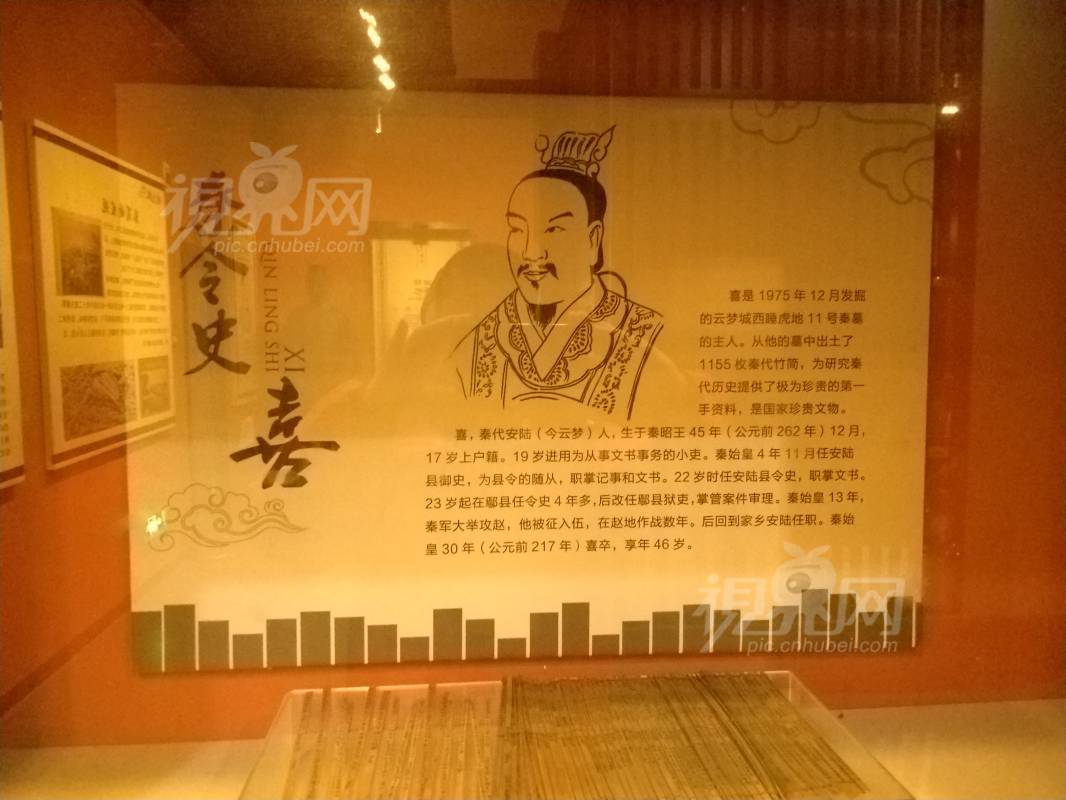 秦令史
QIN LING SHI
喜
XI
喜是 1975 年 12 月发掘
的云梦城西睡虎地 11 号秦墓
的主人。从他的墓中出土了
1155 枚秦代竹简，为研究秦
代历史提供了极为珍贵的第一
手资料，是国家珍贵文物。
喜，秦代安陆（今云梦）人，生于秦昭王 45 年（公元前 262 年）12 月，
17 岁上户籍。19 岁进用为从事文书事务的小吏。秦始皇 4 年 11 月任安陆
县御史，为县令的随从，职掌记事和文书。22 岁时任安陆县令史，职掌文书。
23 岁起在鄢县任令史 4 年多，后改任鄢县狱吏，掌管案件审理。秦始皇 13 年，
秦军大举攻赵，他被征入伍，在赵地作战数年。后回到家乡安陆任职。秦始
皇 30 年（公元前 217 年）喜卒，享年 46 岁。
视界网
pic.cnhubei.com
视界网
pic.cnhubei.com